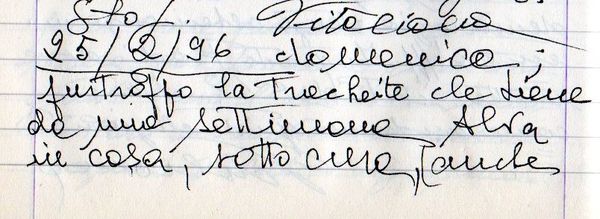 Sto/. Vitaliano
25/2/96 domenica;
purtroppo la Tracheite che tiene
da una settimana Alva
in casa, sotto cura, (anche